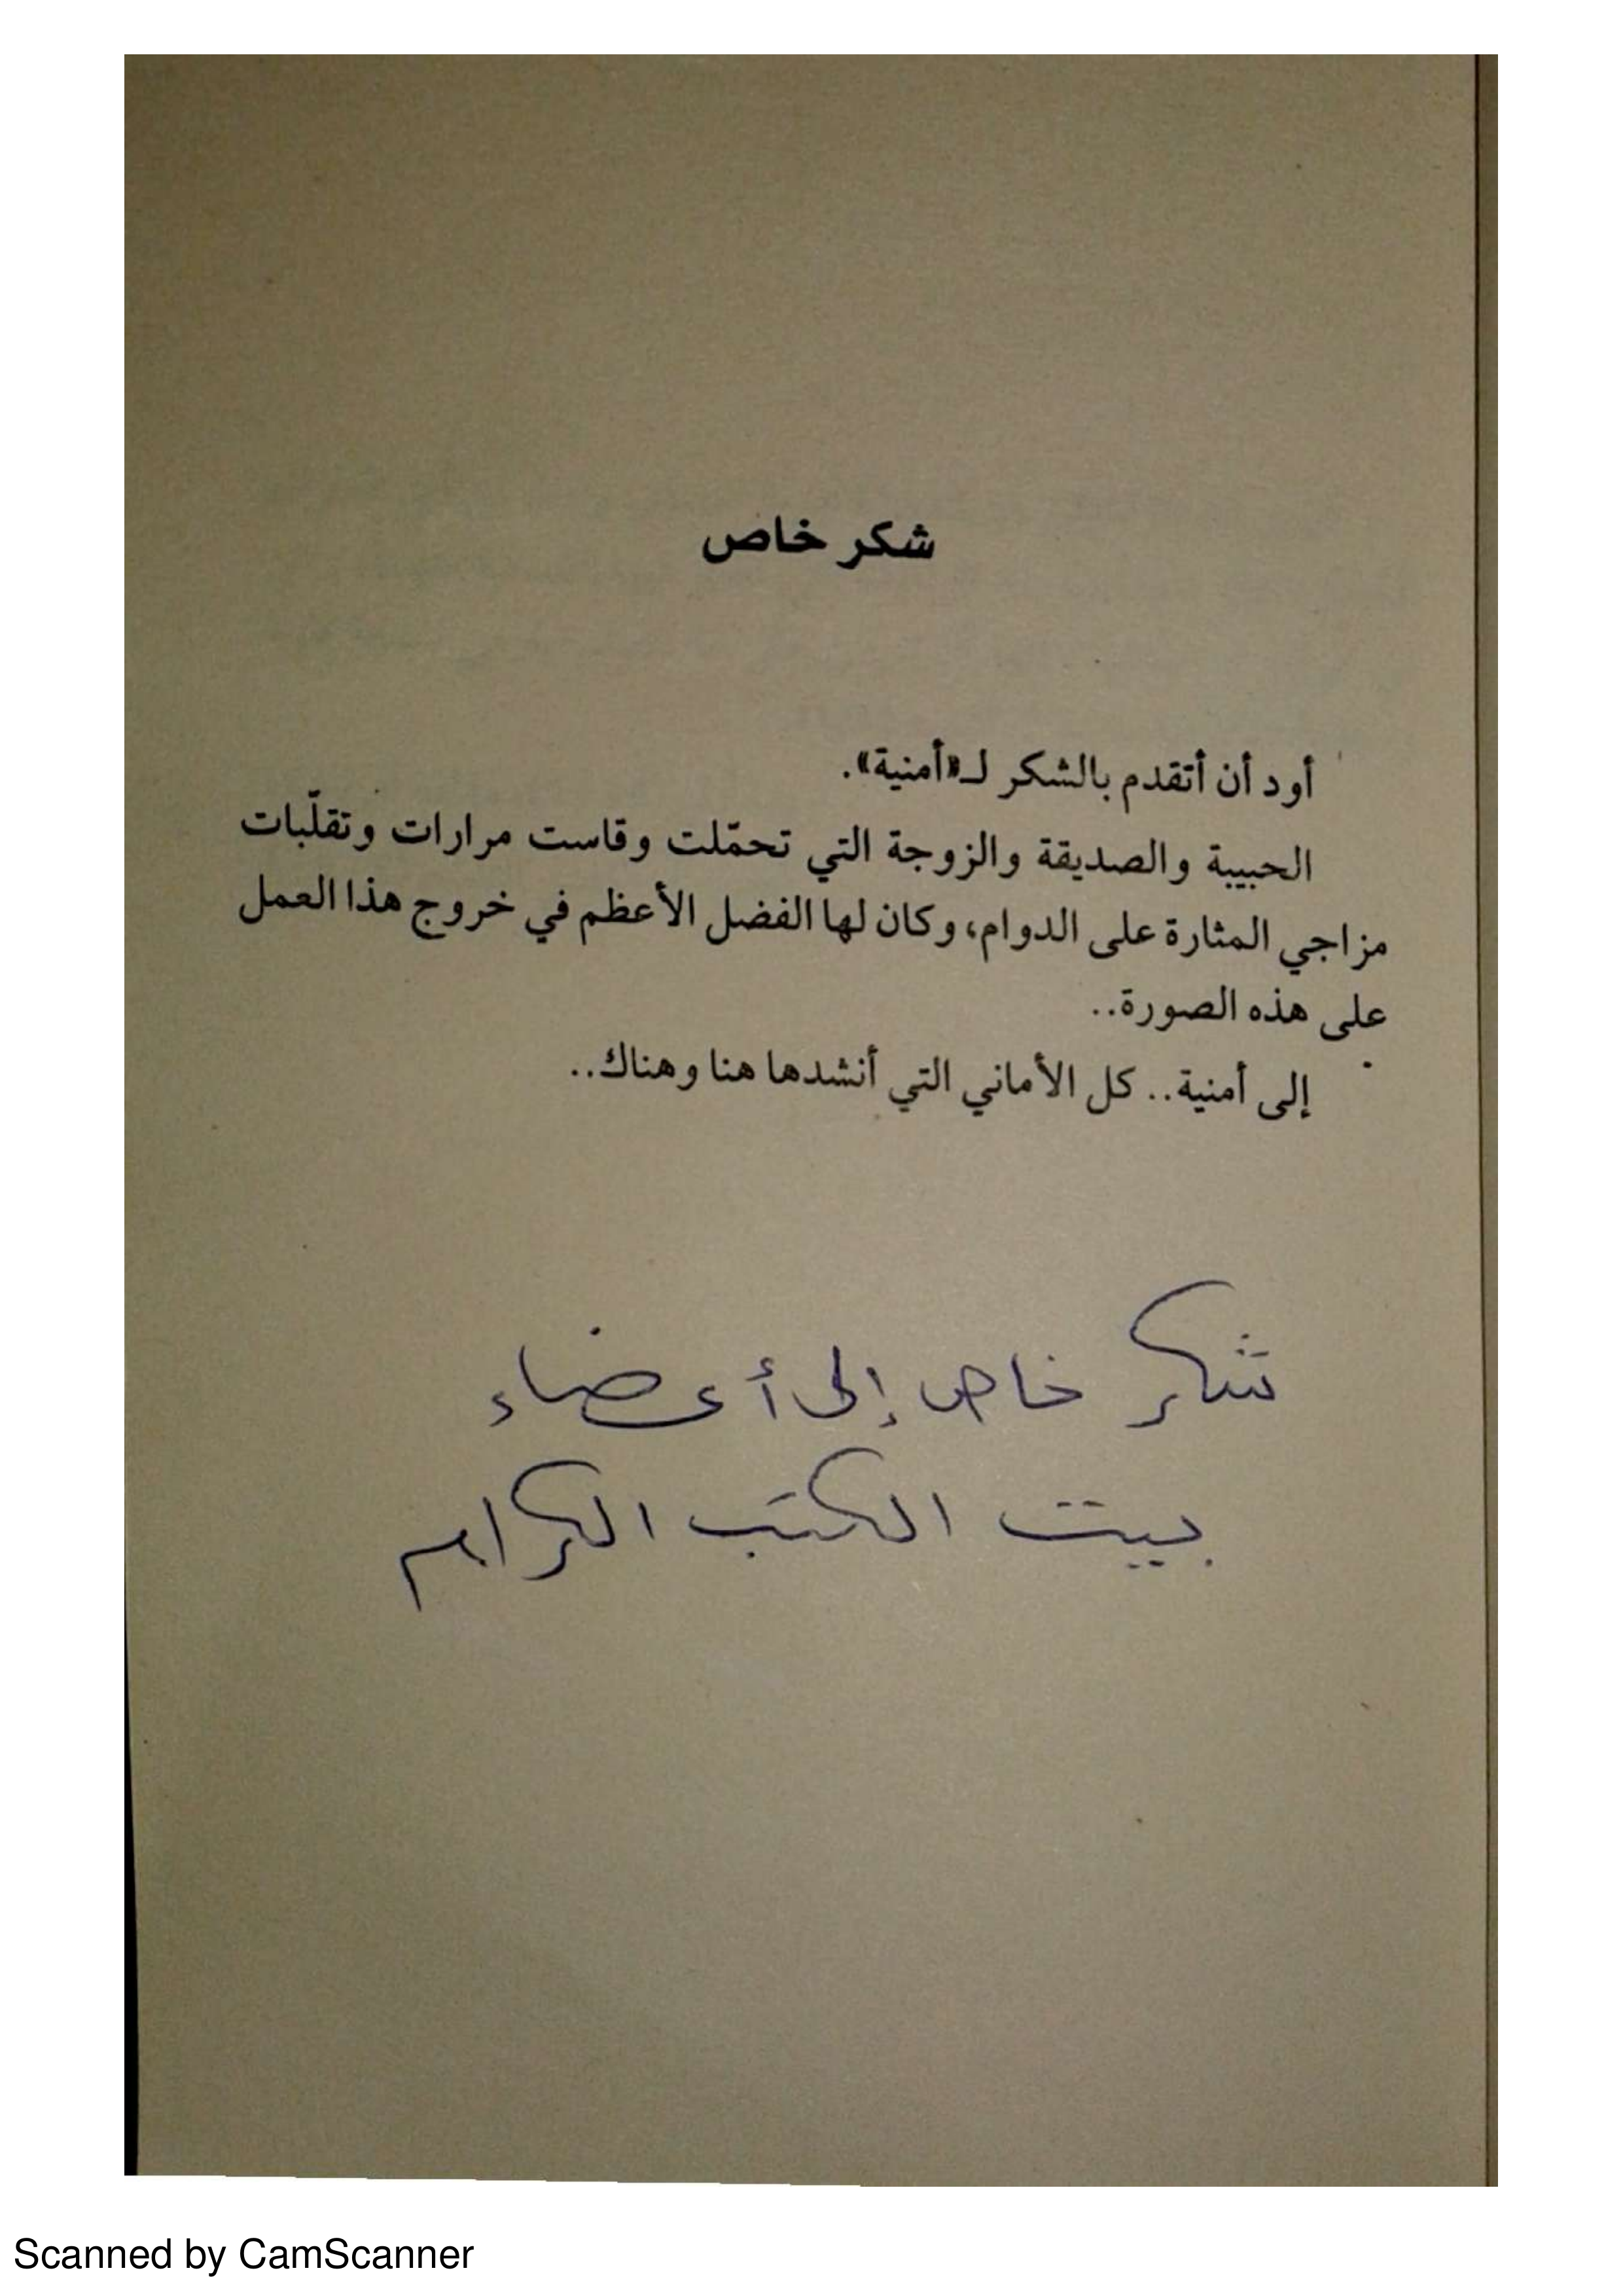 شكر خاص
أود أن أتقدم بالشكر لـ«أمنية».
الحبيبة والصديقة والزوجة التي تحمّلت وقاست مرارات وتقلّبات
مزاجي المثارة على الدوام، وكان لها الفضل الأعظم في خروج هذا العمل
على هذه الصورة..
إلى أمنية.. كل الأماني التي أنشدها هنا وهناك..
شكر خاص إلى أعضاء
بيت الكتب الكرام
Scanned by CamScanner